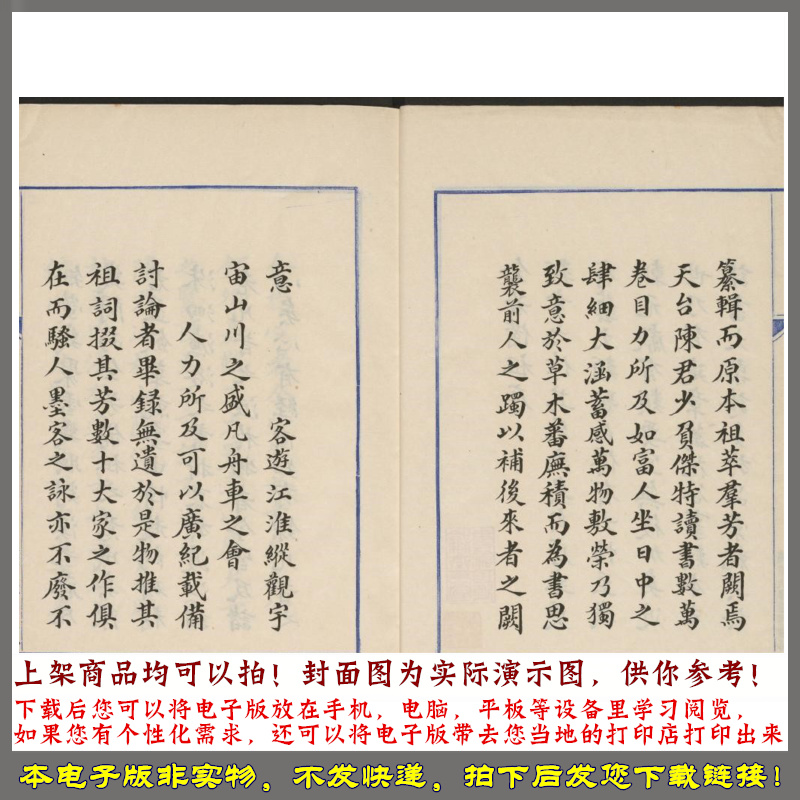 纂輯而原本祖萃羣芳者闕焉
天台陳君少負傑特讀書數萬
卷目力所及如富人坐日中之
肆細大涵蓄感萬物敷榮乃獨
致意於草木蕃廡積而為書思
襲前人之躅以補後來者之闕
意 客遊江淮縱觀宇
宙山川之盛凡舟車之會
人力所及可以廣紀載備
討論者畢録無遺於是物推其
祖詞掇其芳數十大家之作俱
在而騷人墨客之詠亦不廢不
上架商品均可以拍！封面图为实际演示图，供你参考！
下载后您可以将电子版放在手机，电脑，平板等设备里学习阅览，
如果您有个性化需求，还可以将电子版带去您当地的打印店打印出来
本电子版非实物，不发快递，拍下后发您下载链接！